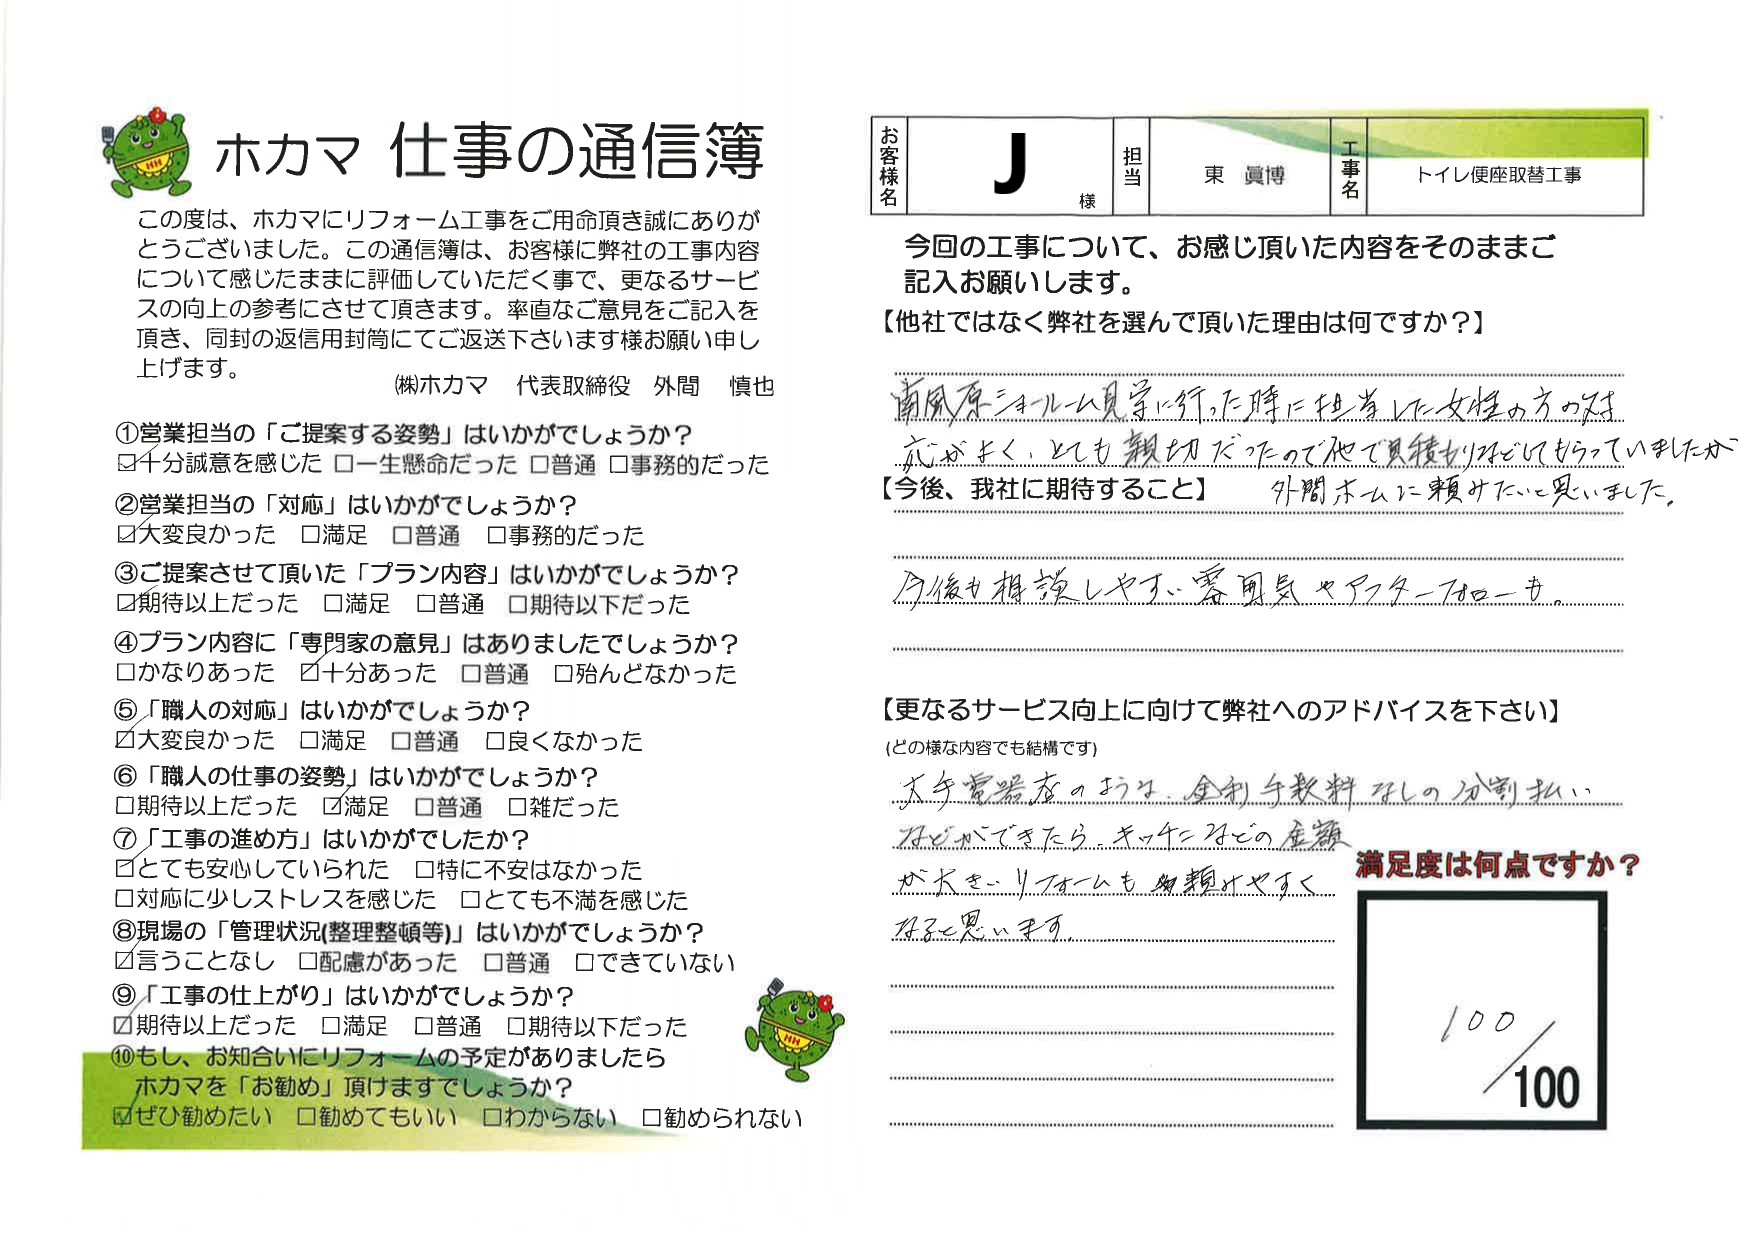 ホカマ 仕事の通信簿
この度は、ホカマにリフォーム工事をご用命頂き誠にありが
とうございました。この通信簿は、お客様に弊社の工事内容
について感じたままに評価していただく事で、更なるサービ
スの向上の参考にさせて頂きます。率直なご意見をご記入を
頂き、同封の返信用封筒にてご返送下さいます様お願い申し
上げます。
㈱ホカマ 代表取締役 外間 慎也
①営業担当の「ご提案する姿勢」はいかがでしょうか？
☑十分誠意を感じた □一生懸命だった □普通 □事務的だった
②営業担当の「対応」はいかがでしょうか？
☑大変良かった □満足 □普通 □事務的だった
③ご提案させて頂いた「プラン内容」はいかがでしょうか？
☑期待以上だった □満足 □普通 □期待以下だった
④プラン内容に「専門家の意見」はありましたでしょうか？
□かなりあった ☑十分あった □普通 □殆んどなかった
⑤「職人の対応」はいかがでしょうか？
☑大変良かった □満足 □普通 □良くなかった
⑥「職人の仕事の姿勢」はいかがでしょうか？
□期待以上だった ☑満足 □普通 □雑だった
⑦「工事の進め方」はいかがでしたか？
☑とても安心していられた □特に不安はなかった
□対応に少しストレスを感じた □とても不満を感じた
⑧現場の「管理状況(整理整頓等)」はいかがでしょうか？
☑言うことなし □配慮があった □普通 □できていない
⑨「工事の仕上がり」はいかがでしょうか？
☑期待以上だった □満足 □普通 □期待以下だった
⑩もし、お知合いにリフォームの予定がありましたら
ホカマを「お勧め」頂けますでしょうか？
☑ぜひ勧めたい □勧めてもいい □わからない □勧められない
お客様名 J 様 担当 東 眞博 工事名 トイレ便座取替工事
今回の工事について、お感じ頂いた内容をそのままご
記入お願いします。
【他社ではなく弊社を選んで頂いた理由は何ですか？】
南風原ショールーム見学に行った時に担当した女性の方の対
応がよく、とても親切だったので他で見積もりなどしてもらっていましたが
外間ホームに頼みたいと思いました。
【今後、我社に期待すること】
今後も相談しやすい雰囲気やアフターフォローも。
【更なるサービス向上に向けて弊社へのアドバイスを下さい】
(どの様な内容でも結構です)
大手電器店のような、金利手数料なしの分割払い
などができたら、キッチンなどの金額
が大きいリフォームも頼みやすく
なると思います。
満足度は何点ですか？
100/100